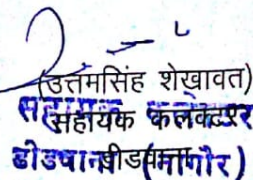 (उत्तमसिंह शेखावत)
सहायक कलक्टर
सहायक कलक्टर
डीडवाना
डीडवाना (नागौर)